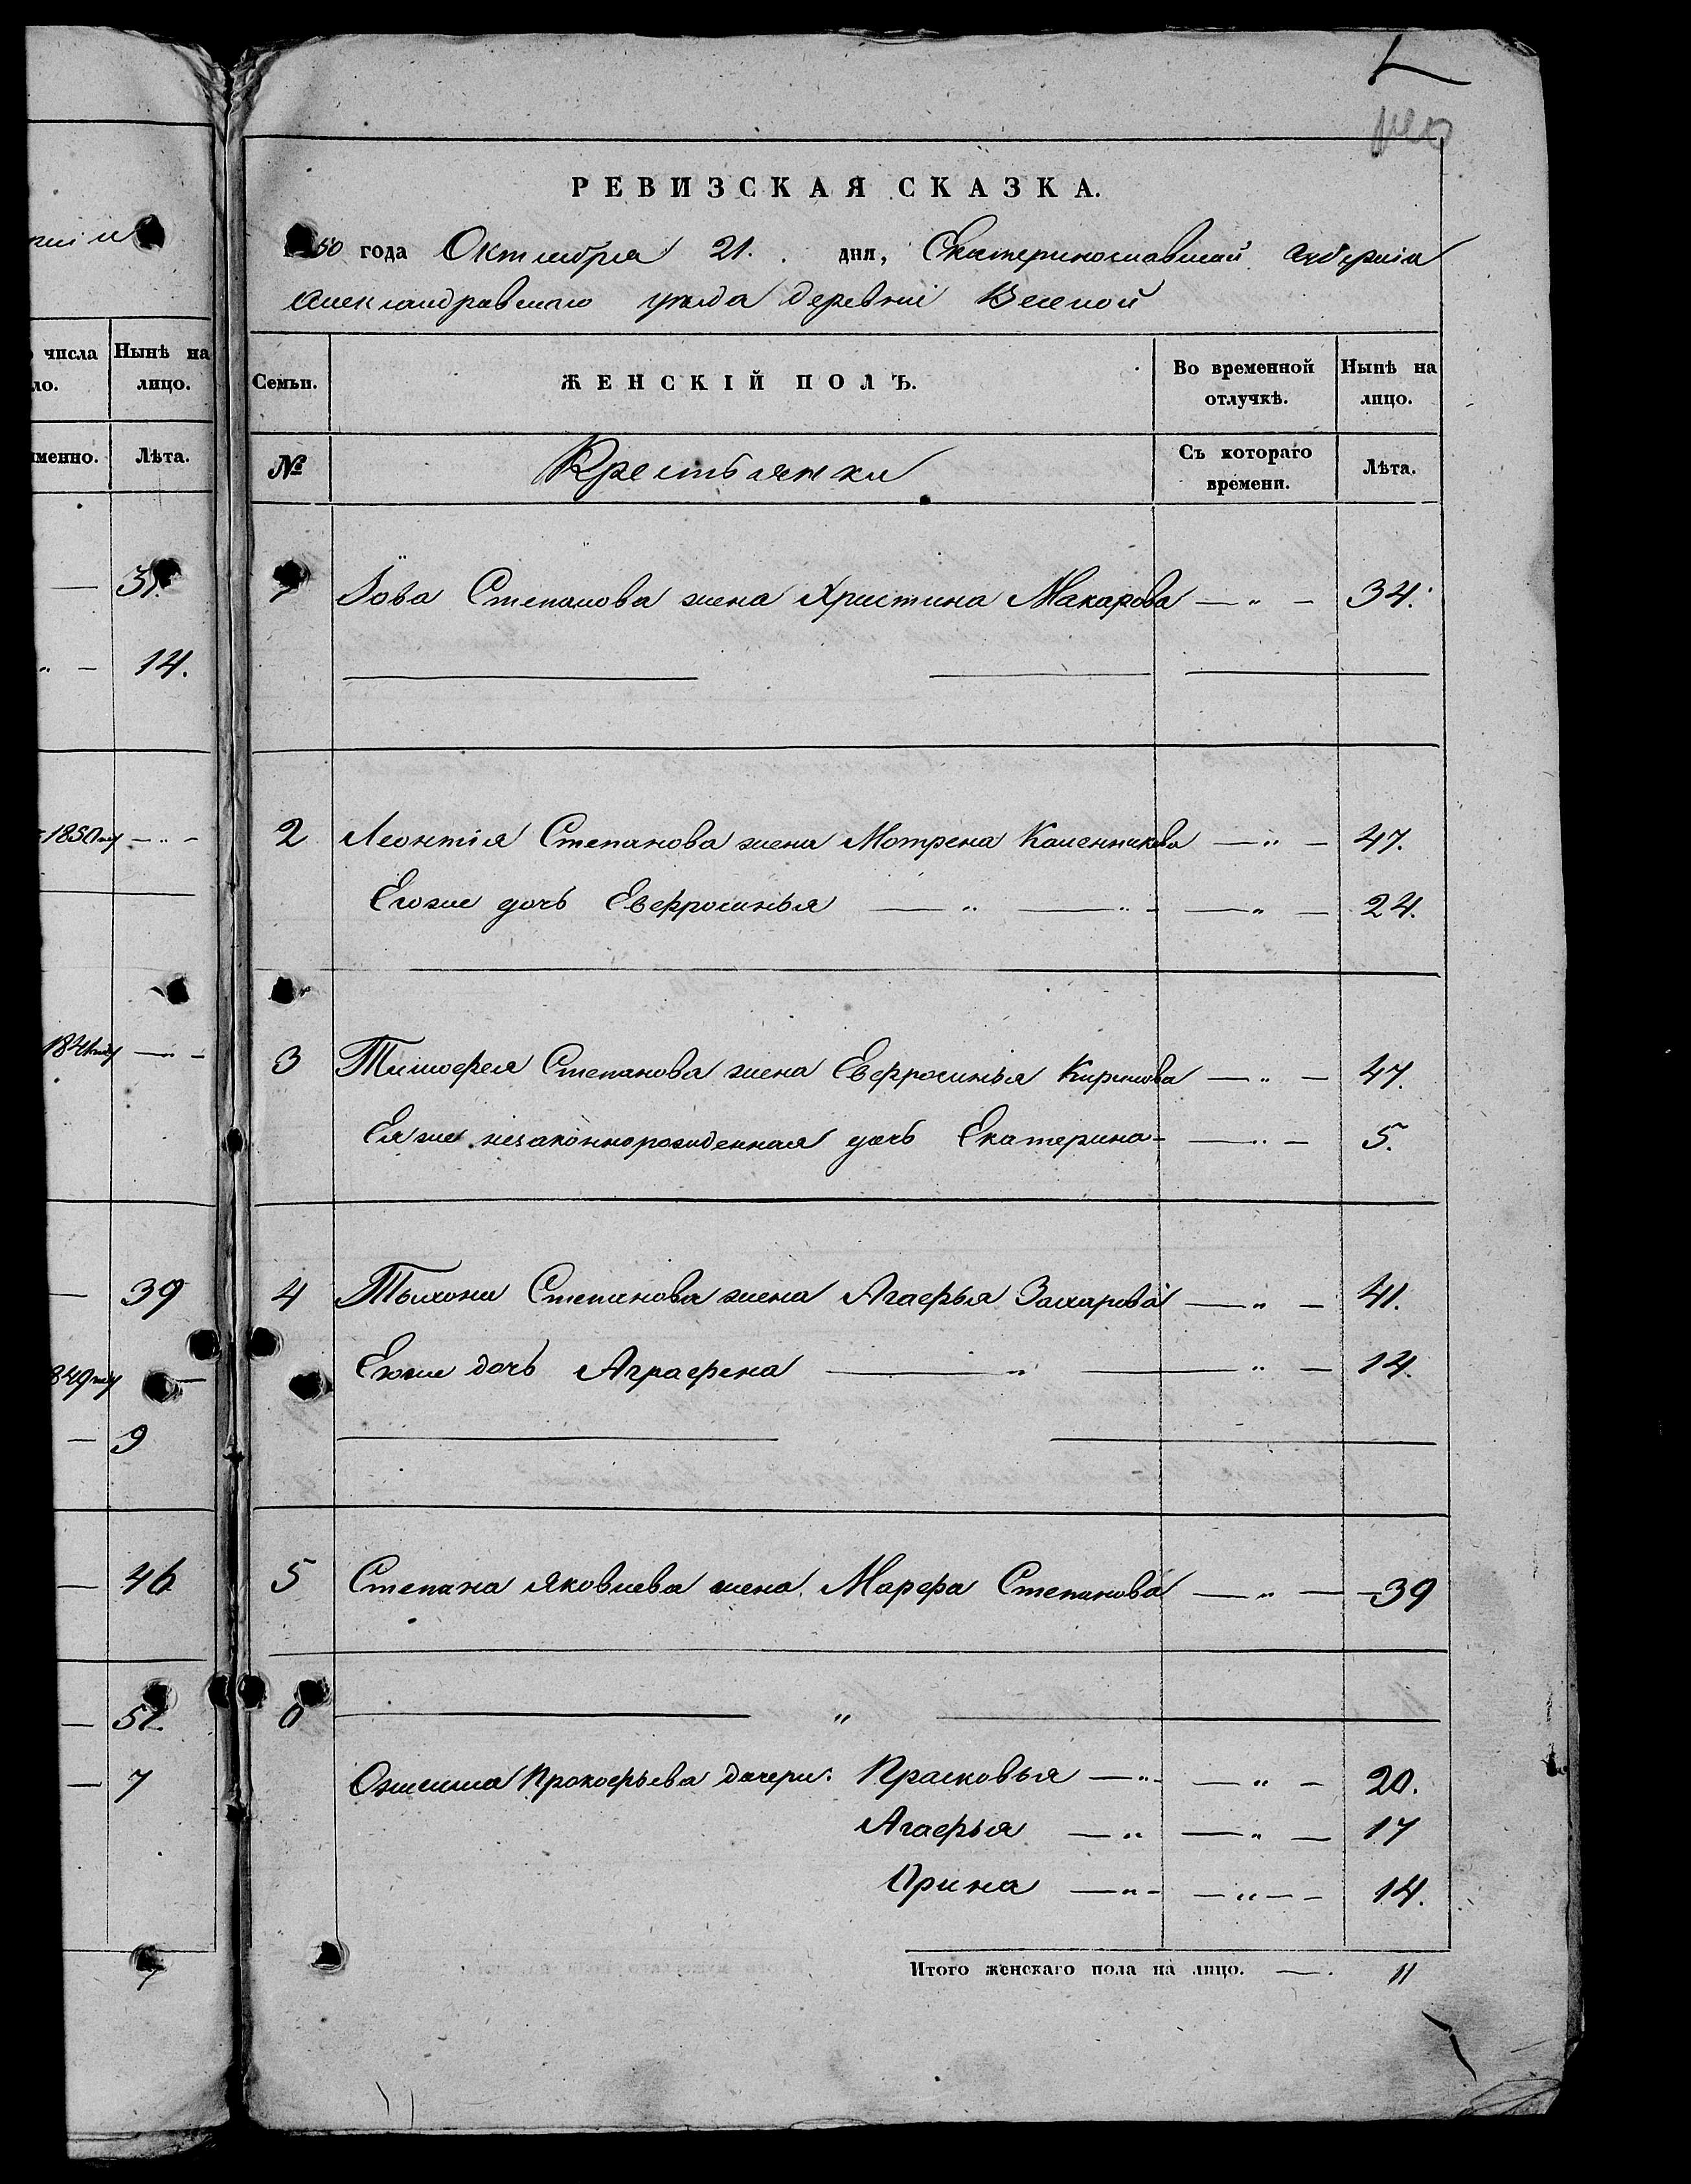 РЕВИЗСКАЯ СКАЗКА.
50 года Октября 21. дня, Екатеринославской губернии
Александравскаго уезда деревни Веселой
числа
Нынѣ на лицо.
именно.
Лѣта.
14.
1850му
39
9
46
7
Семьи.
ЖЕНСКІЙ ПОЛЪ.
Во временной отлучкѣ.
Нынѣ на лицо.
№
Крестьянки
Съ котораго времени.
Лѣта.
Іова Степанова жена Христина Макарова — „ — 34.
2 Леонтія Степанова жена Мотрена Каленникова — „ — 47.
Егоже дочь Евфросинья — „ — „ — — „ — 24.
3 Тимофея Степанова жена Евфросинья Кирилова — „ — 47.
Ея же незаконнорожденная дочь Екатерина - — „ — 5.
4 Тыхона Степанова жена Агафья Захарова — „ — 41.
Егоже дочь Аграфена — „ — „ — 14.
5 Степана Яковлева жена Марфа Степанова — „ — 39
6 — „ —
Прокофьева дочери: Прасковья — „ - — „ — 20.
Агафья — „ — „ — 17
Ирина — „ - — „ — 14.
Итого женскаго пола на лицо. — . 11